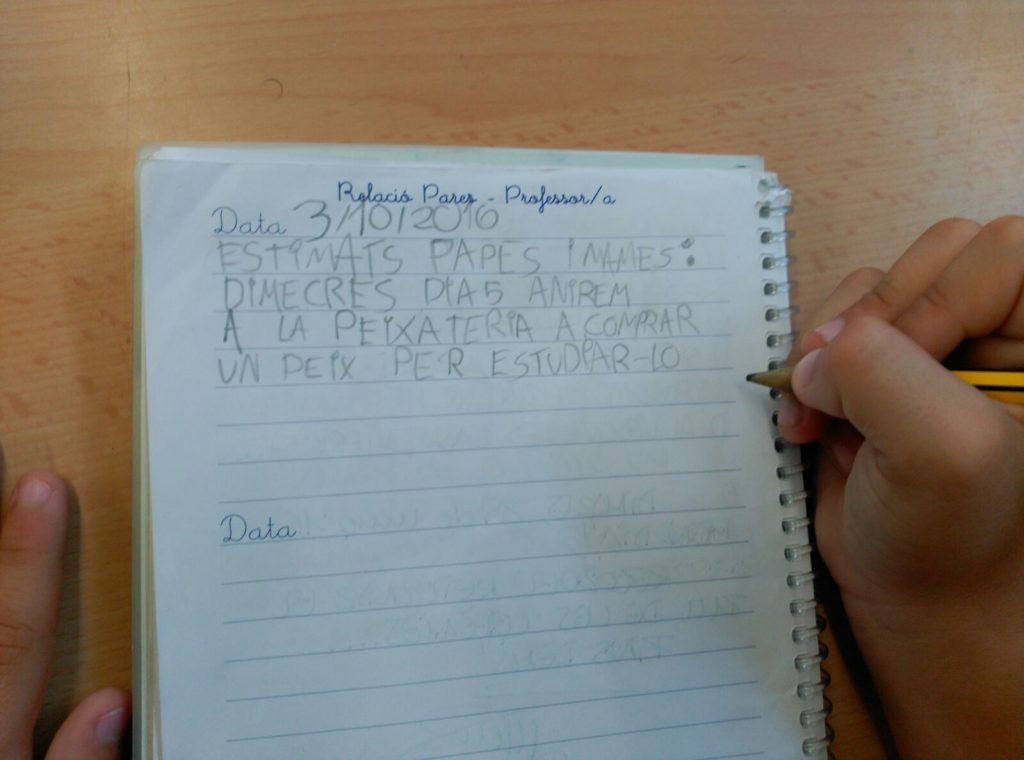 Relació Pares - Professor/a
Data 3/10/2016
ESTIMATS PAPES I MAMES:
DIMECRES DIA 5 ANIREM
A LA PEIXATERIA A COMPRAR
UN PEIX PER ESTUDIAR-LO
Data